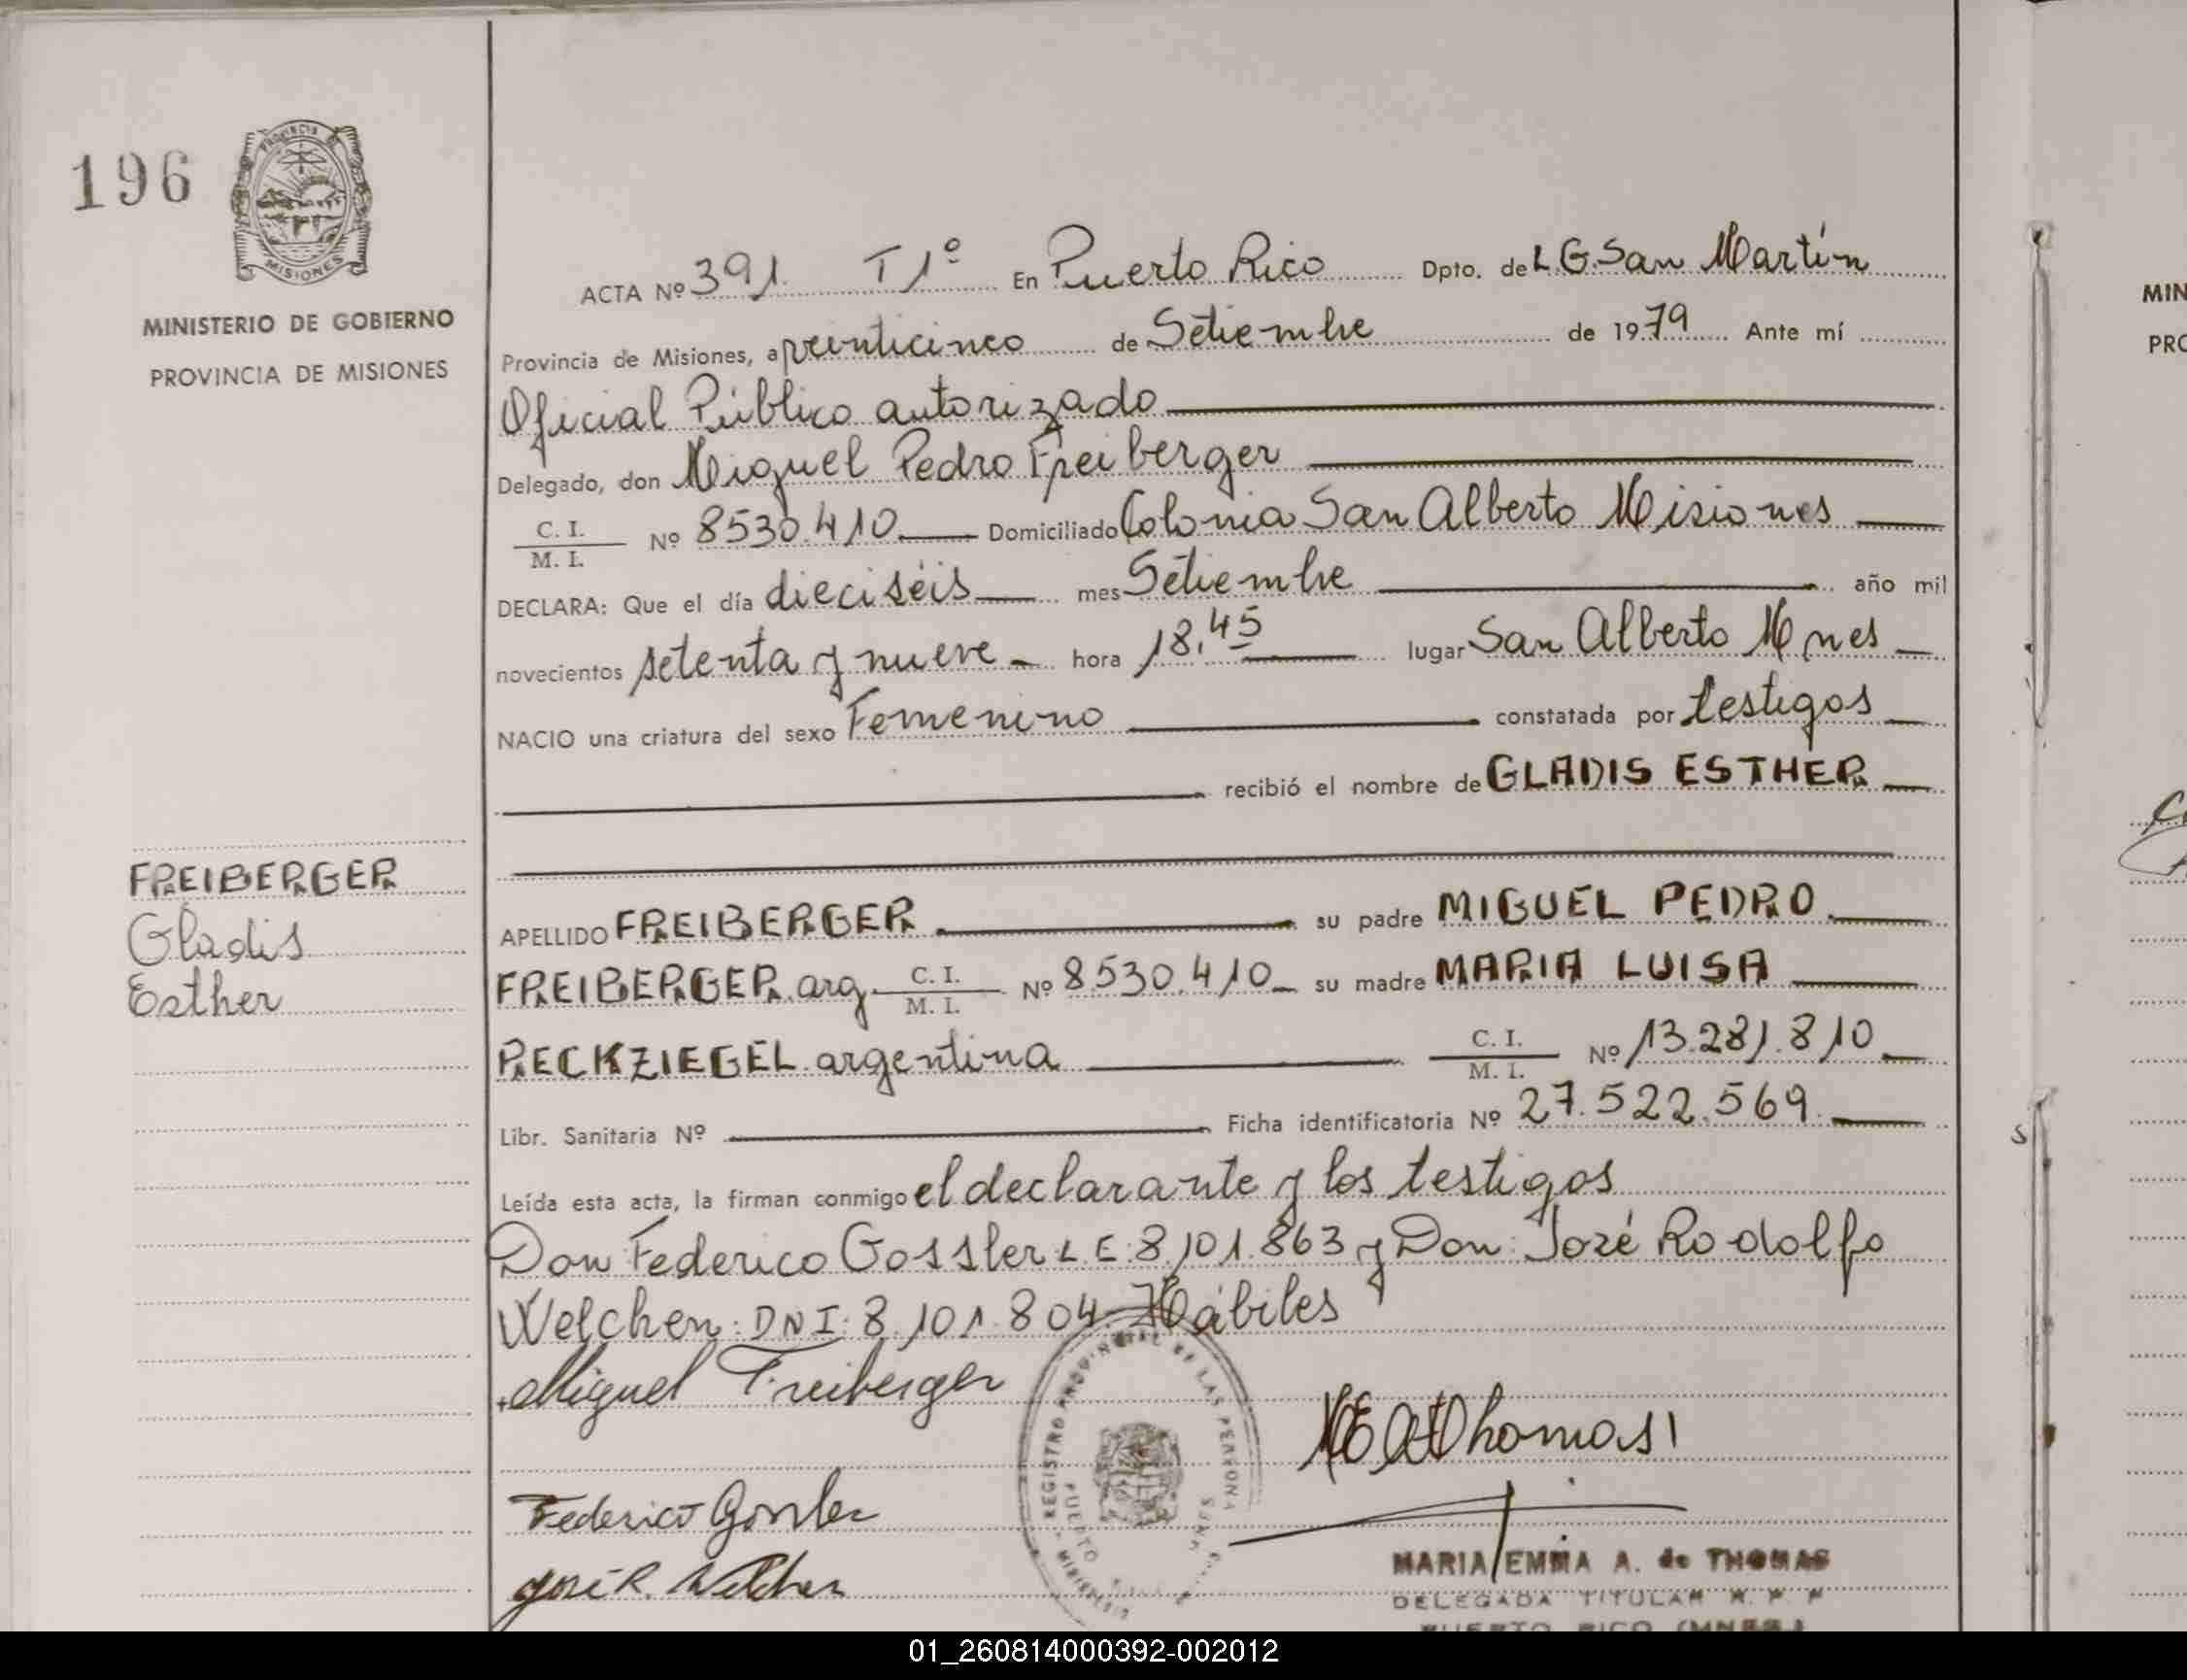 196
PROVINCIA DE
MISIONES
MINISTERIO DE GOBIERNO
PROVINCIA DE MISIONES
FREIBERGER
Gladis
Esther
ACTA Nº 391. T1º En Puerto Rico Dpto. de L.G.San Martín
Provincia de Misiones, a veinticinco de Setiembre de 1979 Ante mí
Oficial Público autorizado
Delegado, don Miguel Pedro Freiberger
C. I.
M. I. Nº 8530.410 Domiciliado Colonia San Alberto Misiones
DECLARA: Que el día dieciséis mes Setiembre año mil
novecientos setenta y nueve hora 18,45 lugar San Alberto Mnes
NACIO una criatura del sexo Femenino constatada por testigos
recibió el nombre de GLADIS ESTHER
APELLIDO FREIBERGER su padre MIGUEL PEDRO
FREIBERGER. arg. C. I. M. I. Nº 8.530.410 su madre MARIA LUISA
RECKZIEGEL. argentina C. I. M. I. Nº 13.281.810
Libr. Sanitaria Nº Ficha identificatoria Nº 27.522.569.
Leída esta acta, la firman conmigo el declarante y los testigos
Don Federico Gossler L.E: 8.101.863 y Don: José Rodolfo
Welchen: DNI: 8.101.804. Hábiles
Miguel Freiberger
Federico Gossler
José R. Welchen
REGISTRO PROVINCIAL DE LAS PERSONAS
PUERTO
MEAdThomas
MARIA EMMA A. de THOMAS
DELEGADA TITULAR R. P. P
PUERTO RICO (MNES.)
MIN
PRO
01_260814000392-002012